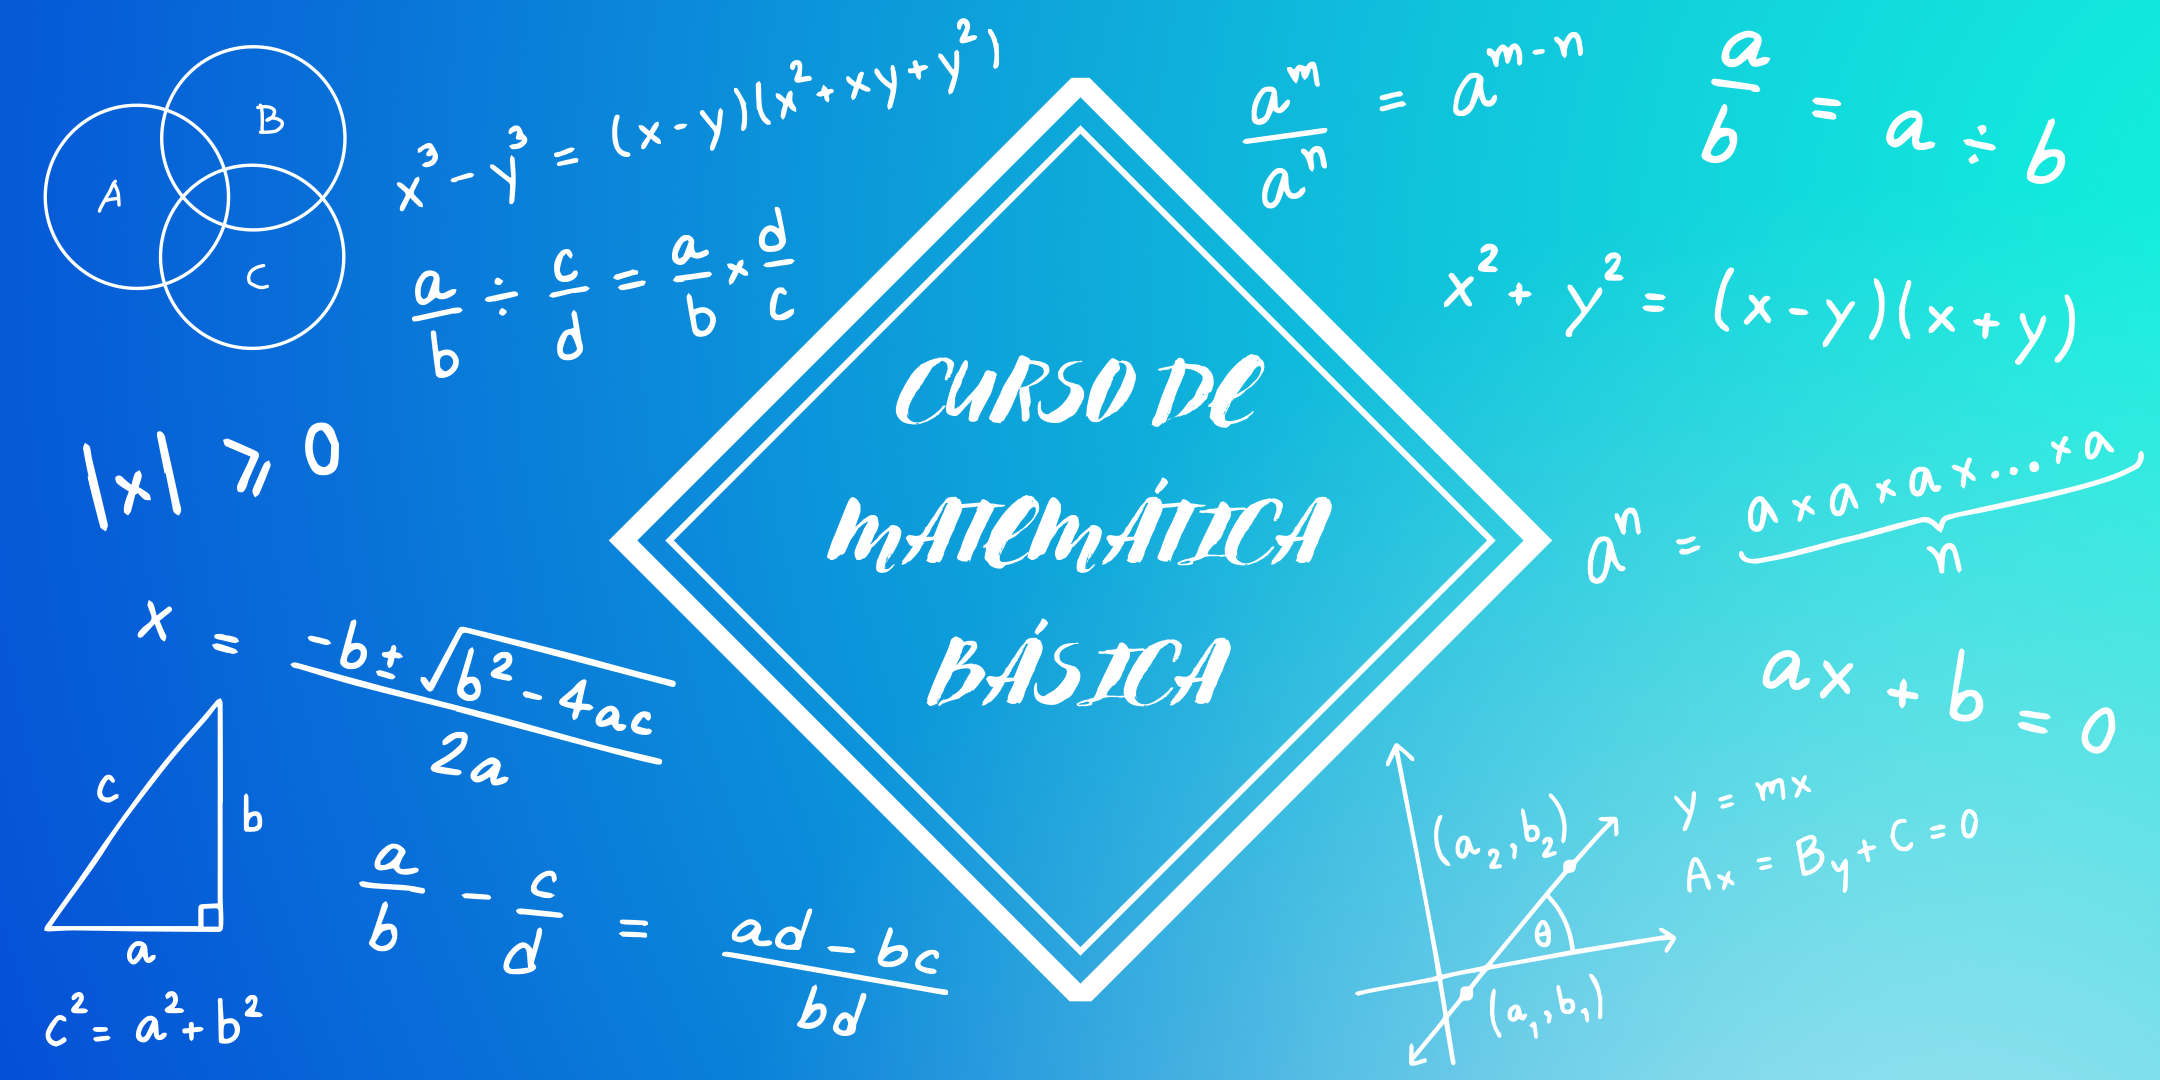 A
B
C
x³ - y³ = (x - y)(x² + xy + y²)
a/b ÷ c/d = a/b × d/c
|x| ⩾ 0
x = -b ± √b² - 4ac / 2a
c
b
a
c² = a² + b²
a/b - c/d = ad - bc / bd
CURSO DE
MATEMÁTICA
BÁSICA
aᵐ/aⁿ = aᵐ⁻ⁿ
a/b = a ÷ b
x² + y² = (x - y)(x + y)
aⁿ = a × a × a × ... × a
n
ax + b = 0
(a₂, b₂)
θ
(a₁, b₁)
y = mx
Ax = By + C = 0